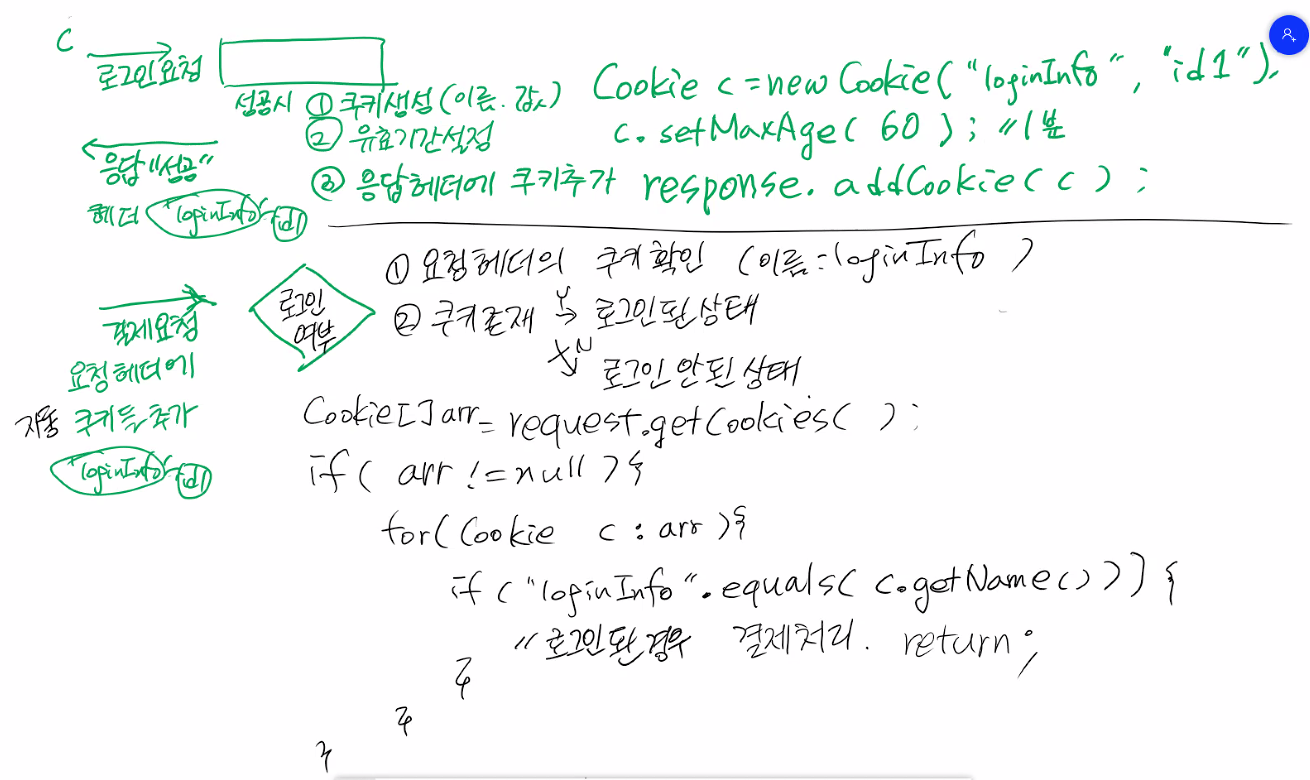 C
로그인 요청
성공시 ① 쿠키생성 (이름. 값)
Cookie c = new Cookie("loginInfo", "id1");
② 유효기간설정
c. setMaxAge( 60 ); //1분
응답"성공"
③ 응답헤더에 쿠키추가 response. addCookie( c ) ;
헤더 "loginInfo" id1
① 요청헤더의 쿠키확인 (이름:loginInfo )
로그인
여부
② 쿠키존재 Y → 로그인된상태
N
로그인 안된 상태
결제요청
요청헤더에
자동 쿠키들 추가
"loginInfo" id1
Cookie[] arr = request.getCookies( ) ;
if( arr != null ){
for( Cookie c : arr ){
if ( "loginInfo".equals( c.getName() ) ) {
// 로그인 된 경우 결제처리. return ;
}
}
}